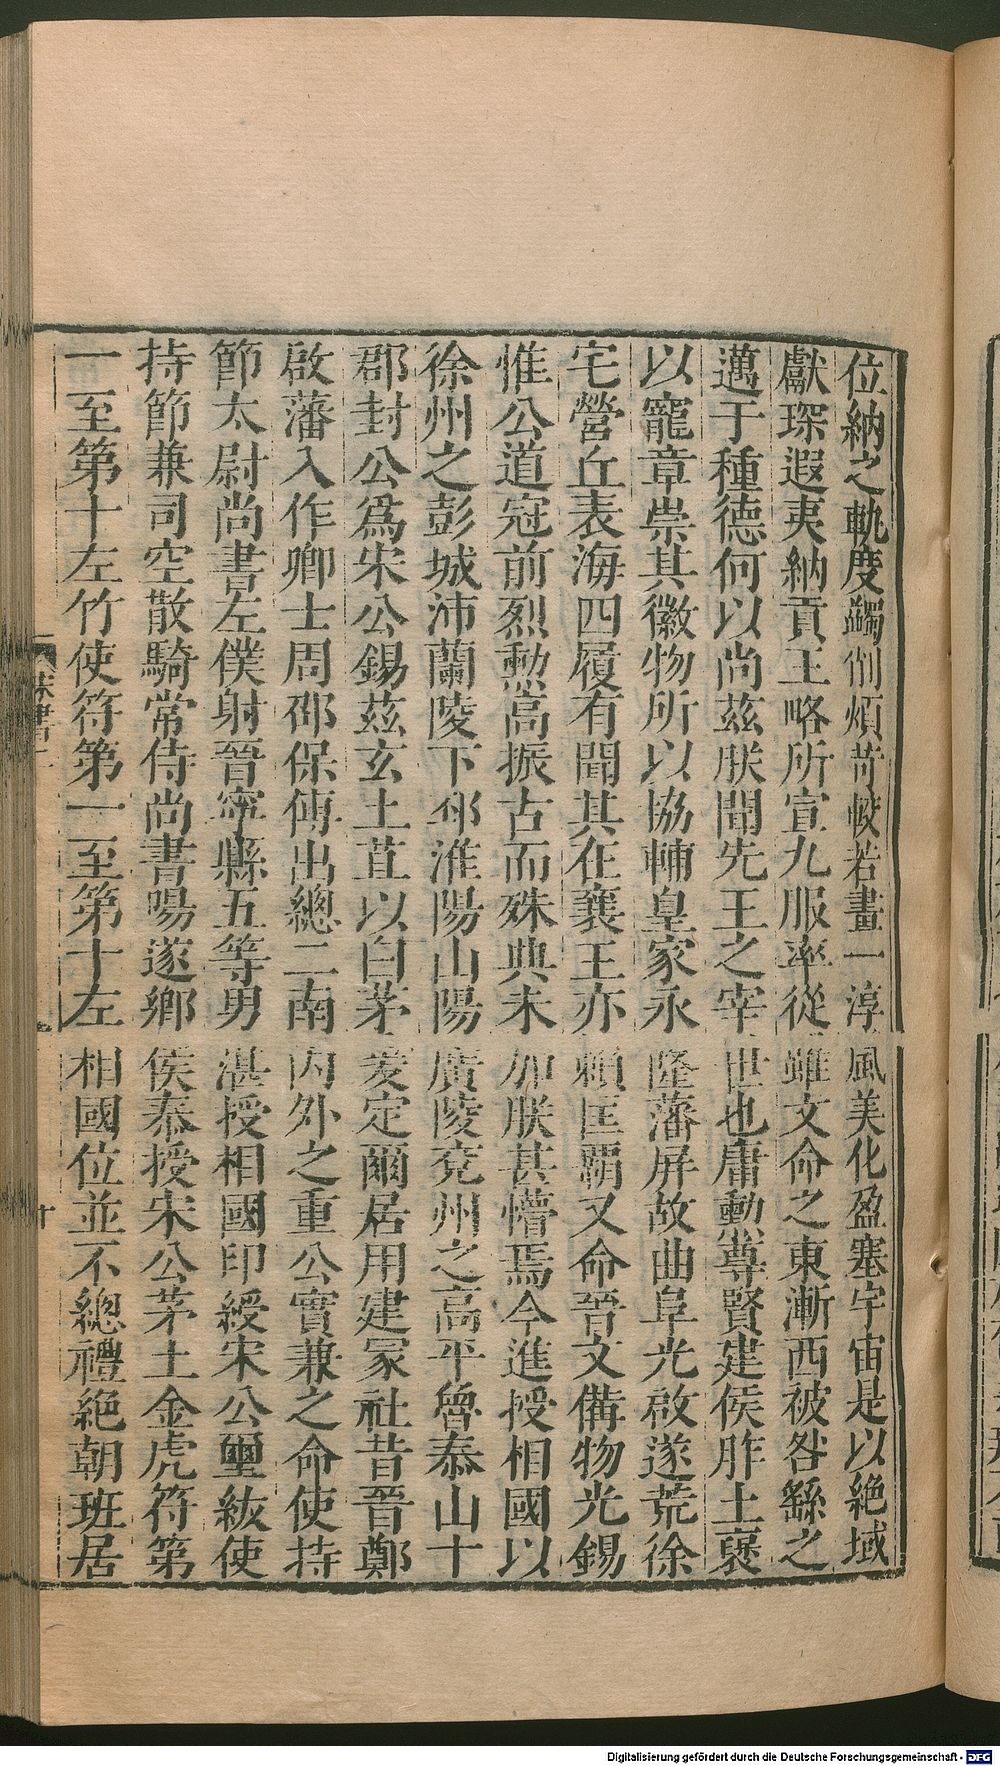 位納之軌度蠲削煩苛較若畫一淳風美化盈塞宇宙是以絶域
獻琛遐夷納貢王略所宣九服率從雖文命之東漸西被咎繇之
邁于種德何以尚茲朕聞先王之宰世也庸勳尊賢建侯胙土襃
以寵章崇其徽物所以協輔皇家永隆藩屏故曲阜光啟遂荒徐
宅營丘表海四履有聞其在襄王亦賴匡霸又命晉文備物光錫
惟公道冠前烈勳高振古而殊典未加朕甚懵焉今進授相國以
徐州之彭城沛蘭陵下邳淮陽山陽廣陵兖州之高平魯泰山十
郡封公爲宋公錫茲玄土苴以白茅爰定爾居用建冢社昔晉鄭
啟藩入作卿士周邵保傅出總二南內外之重公實兼之命使持
節太尉尚書左僕射晉寧縣五等男湛授相國印綬宋公璽紱使
持節兼司空散騎常侍尚書陽遂鄉侯泰授宋公茅土金虎符第
一至第十左竹使符第一至第十左相國位並不總禮絶朝班居
宋書二
十
Digitalisierung gefördert durch die Deutsche Forschungsgemeinschaft - DFG